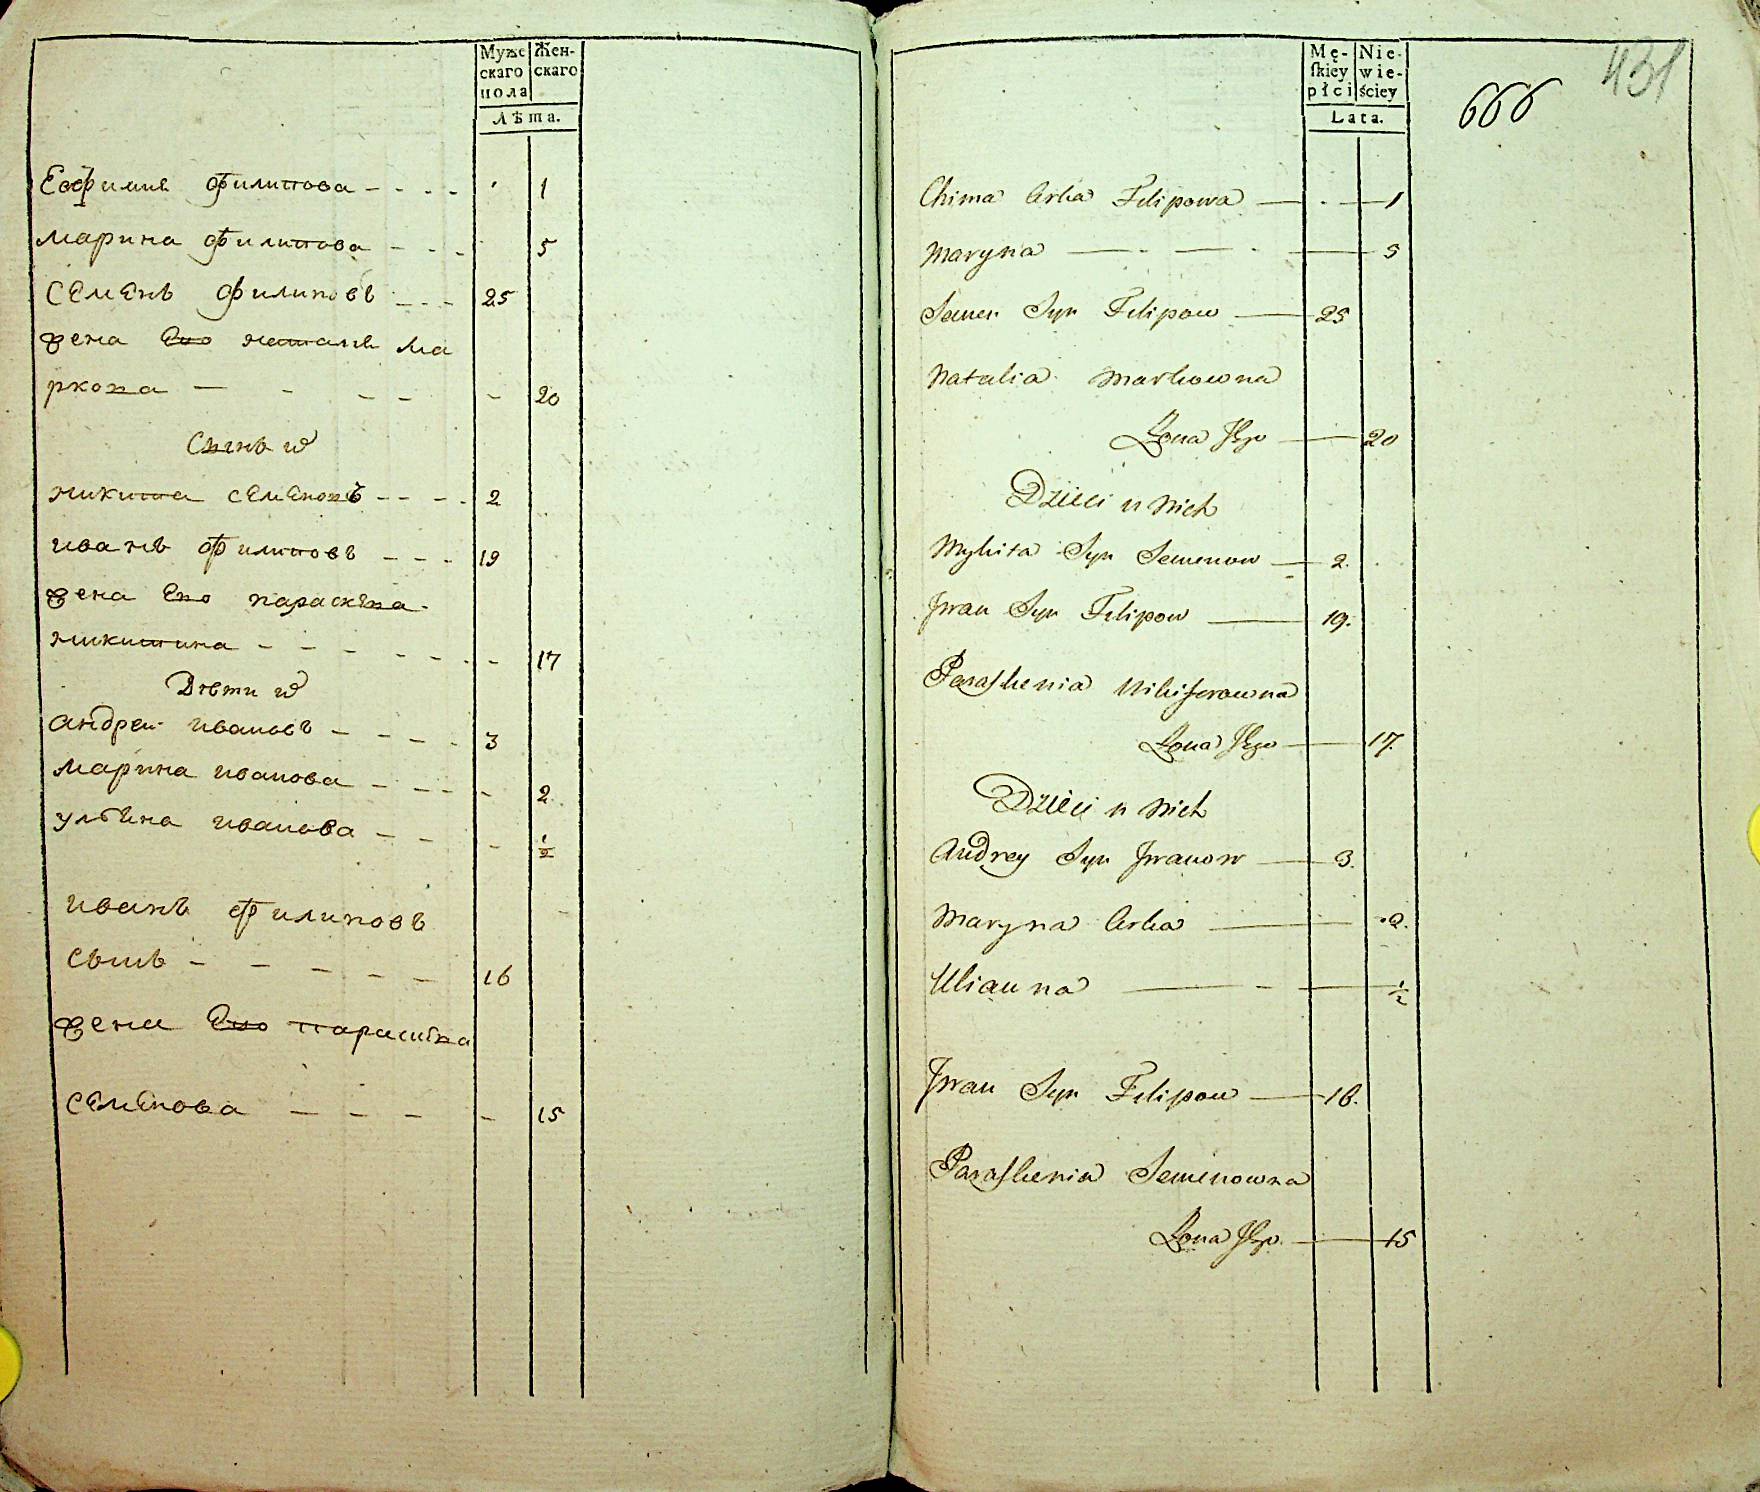 Муже Жен-
скаго скаго
пола
Лѣта.
Евфимия филипова - - - - 1
марина филипова - - - 5
семенъ филиповъ - - - 25
жена Его наталия ма
ркова — - - - - 20
Сынъ ихъ
никита семеновъ - - - - 2
иванъ филиповъ - - - 19
жена Его параскева
никитина - - - - - - - 17
Дѣти ихъ
андреи ивановъ - - - - 3
марина иванова - - - - - 2
улияна иванова - - - 1/2
иванъ филиповъ
сынъ - - - - - 16
жена Его параскева
семенова - - - - - 15
Mę- Nie-
ſkiey wie-
płci ściey
Lata.
431
666
Chima Crka Filipowa — · — 1
Maryna — - — - — 5
Semen Syn Filipow — 25
Natalia Markowna
Zona Jego — 20
Dzieci u Nich
Mykita Syn Semenow — 2.
Jwan Syn Filipow — 19.
Paraſkenia Nikiforowna
Zona Jego — 17.
Dzieci u Nich
Andrey Syn Jwanow — 3.
Maryna Crka — 2.
Ulianna — - — 1/2
Jwan Syn Filipow — 16.
Paraſkenia Semenowna
Zona Jego. — 15